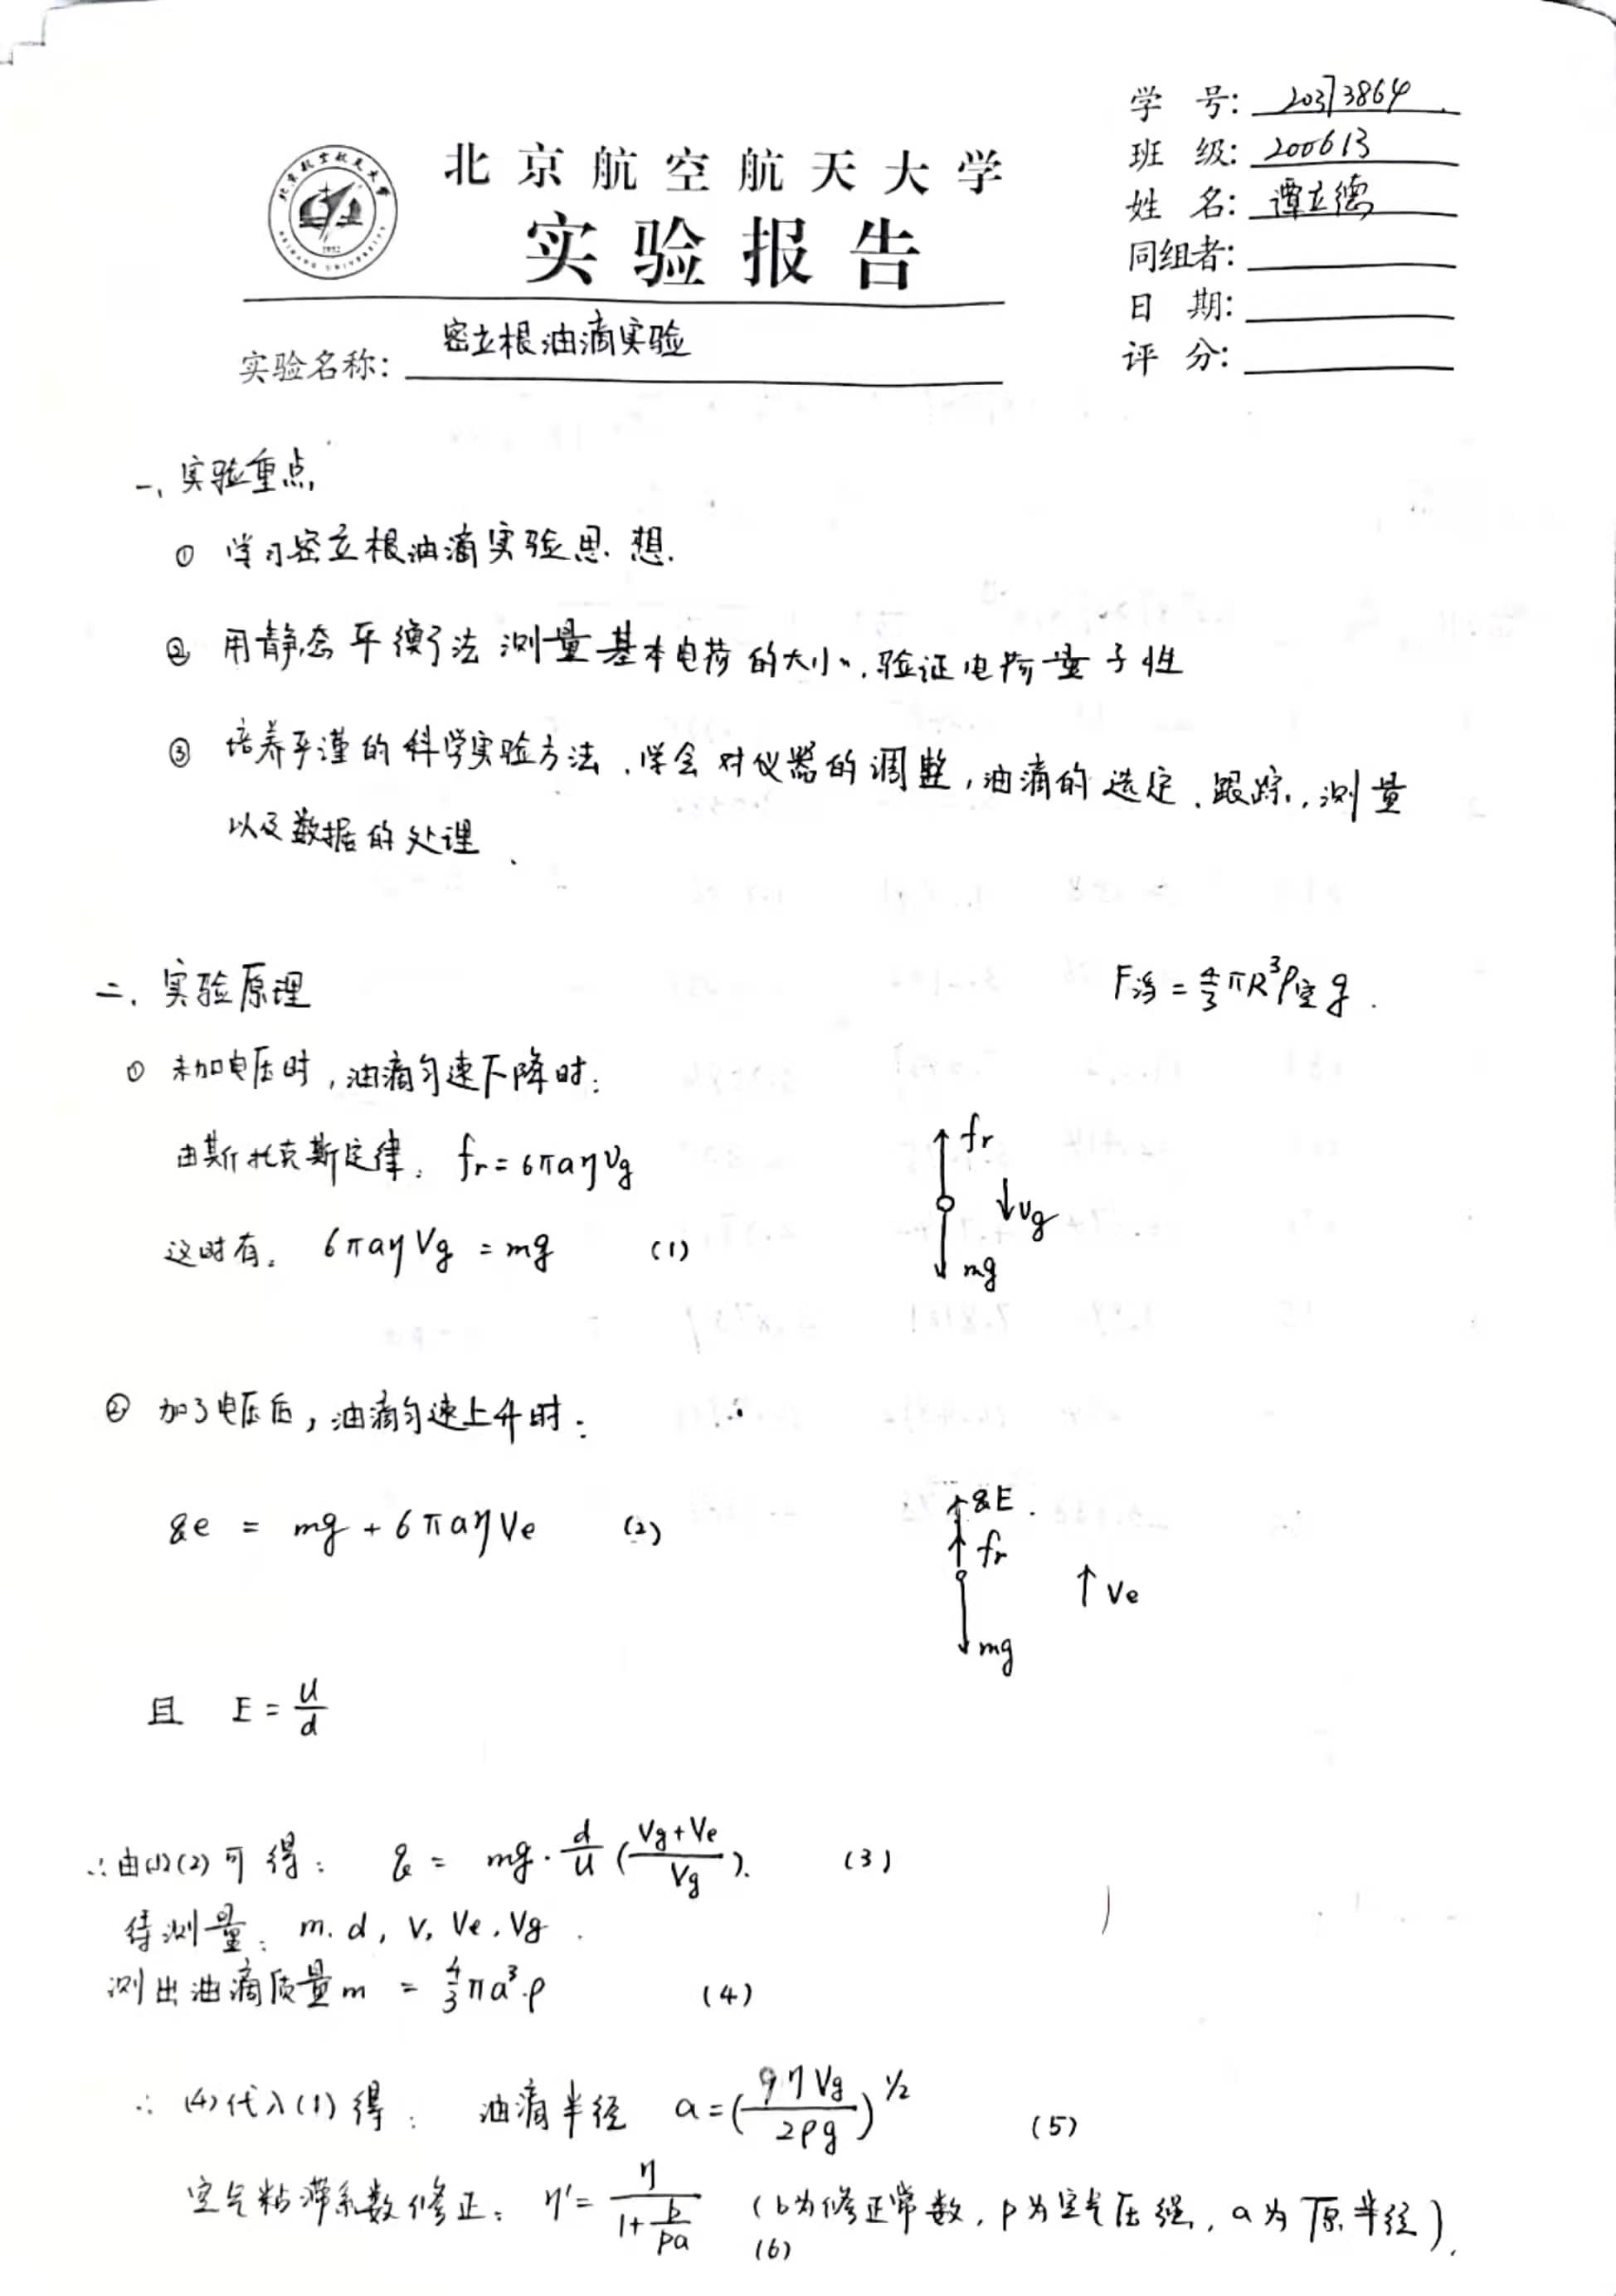 学 号: 20373864
班 级: 200613
姓 名: 谭立德
同组者:
日 期:
评 分:
北京航空航天大学
实验报告
实验名称: 密立根油滴实验
一、实验重点
① 学习密立根油滴实验思想.
② 用静态平衡法测量基本电荷的大小、验证电荷量子性
③ 培养严谨的科学实验方法、学会对仪器的调整,油滴的选定、跟踪、测量
以及数据的处理.
二、实验原理
F浮 = 4/3 πR³ρ空g.
① 未加电压时,油滴匀速下降时:
由斯托克斯定律: fr = 6πaηVg
这时有: 6πaηVg = mg (1)
fr
Vg
mg
② 加了电压后,油滴匀速上升时:
qe = mg + 6πaηVe (2)
qE.
fr
Ve
mg
且 E = U/d
∴由(1)(2)可得: q = mg·d/U (Vg+Ve/Vg). (3)
待测量: m. d, V, Ve, Vg.
测出油滴质量m = 4/3 πa³·ρ (4)
∴ (4)代入(1)得: 油滴半径 a = (9ηVg/2ρg)^1/2 (5)
空气粘滞系数修正: η' = η/(1+b/pa) (b为修正常数, p为空气压强, a为原半径).
(6)